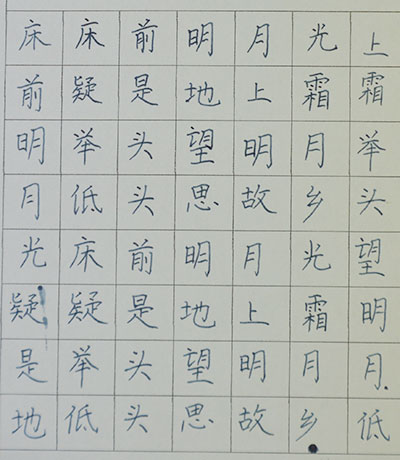 床床前明月光上
前疑是地上霜霜
明举头望明月举
月低头思故乡头
光床前明月光望
疑疑是地上霜明
是举头望明月月
地低头思故乡低